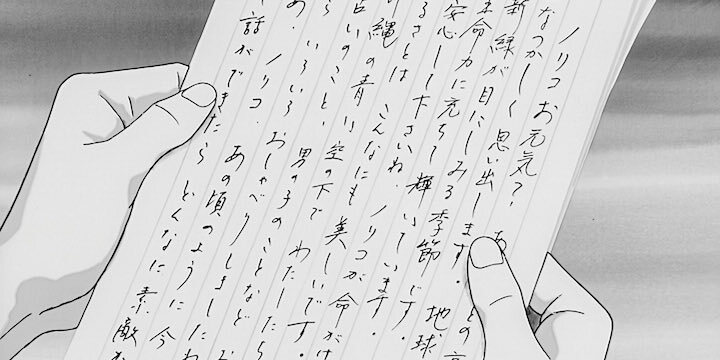 ノリコ お元気? あ との高
なつかしく 思い出します。 地球
新緑が目にしみる季節です。
生命力に充ちて輝いています。
安心して下さいね。ノリコが命がけ
るさとは こんなにも 美しいです。
縄の青い空の下で わたしたち
占いのこと、男の子のことなど お
ら いろいろ おしゃべりしましたわ
あ、ノリコ、あの頃のように 今
話ができたら どんなに素敵